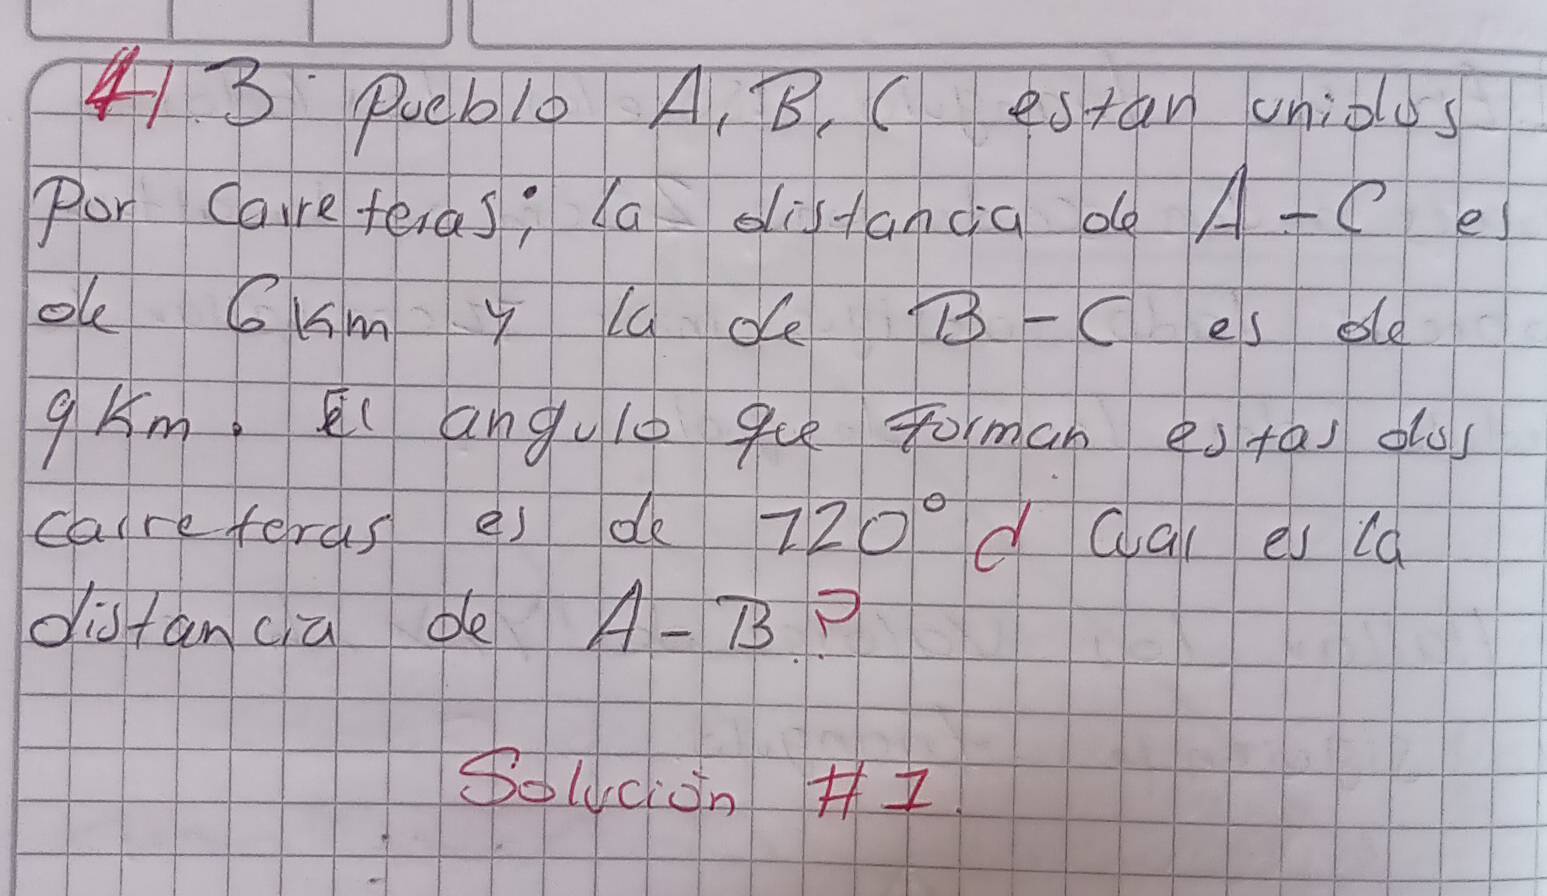 4) 3 Pueblo A, B, C estan unidos
Por Carreteras; la distancia de A-C es
de 6 Km y la de B-C es de
9 Km. El angulo que Forman estas dos
carreteras es de 120° d Cual es la
distancia de A-B?
Solución #1.